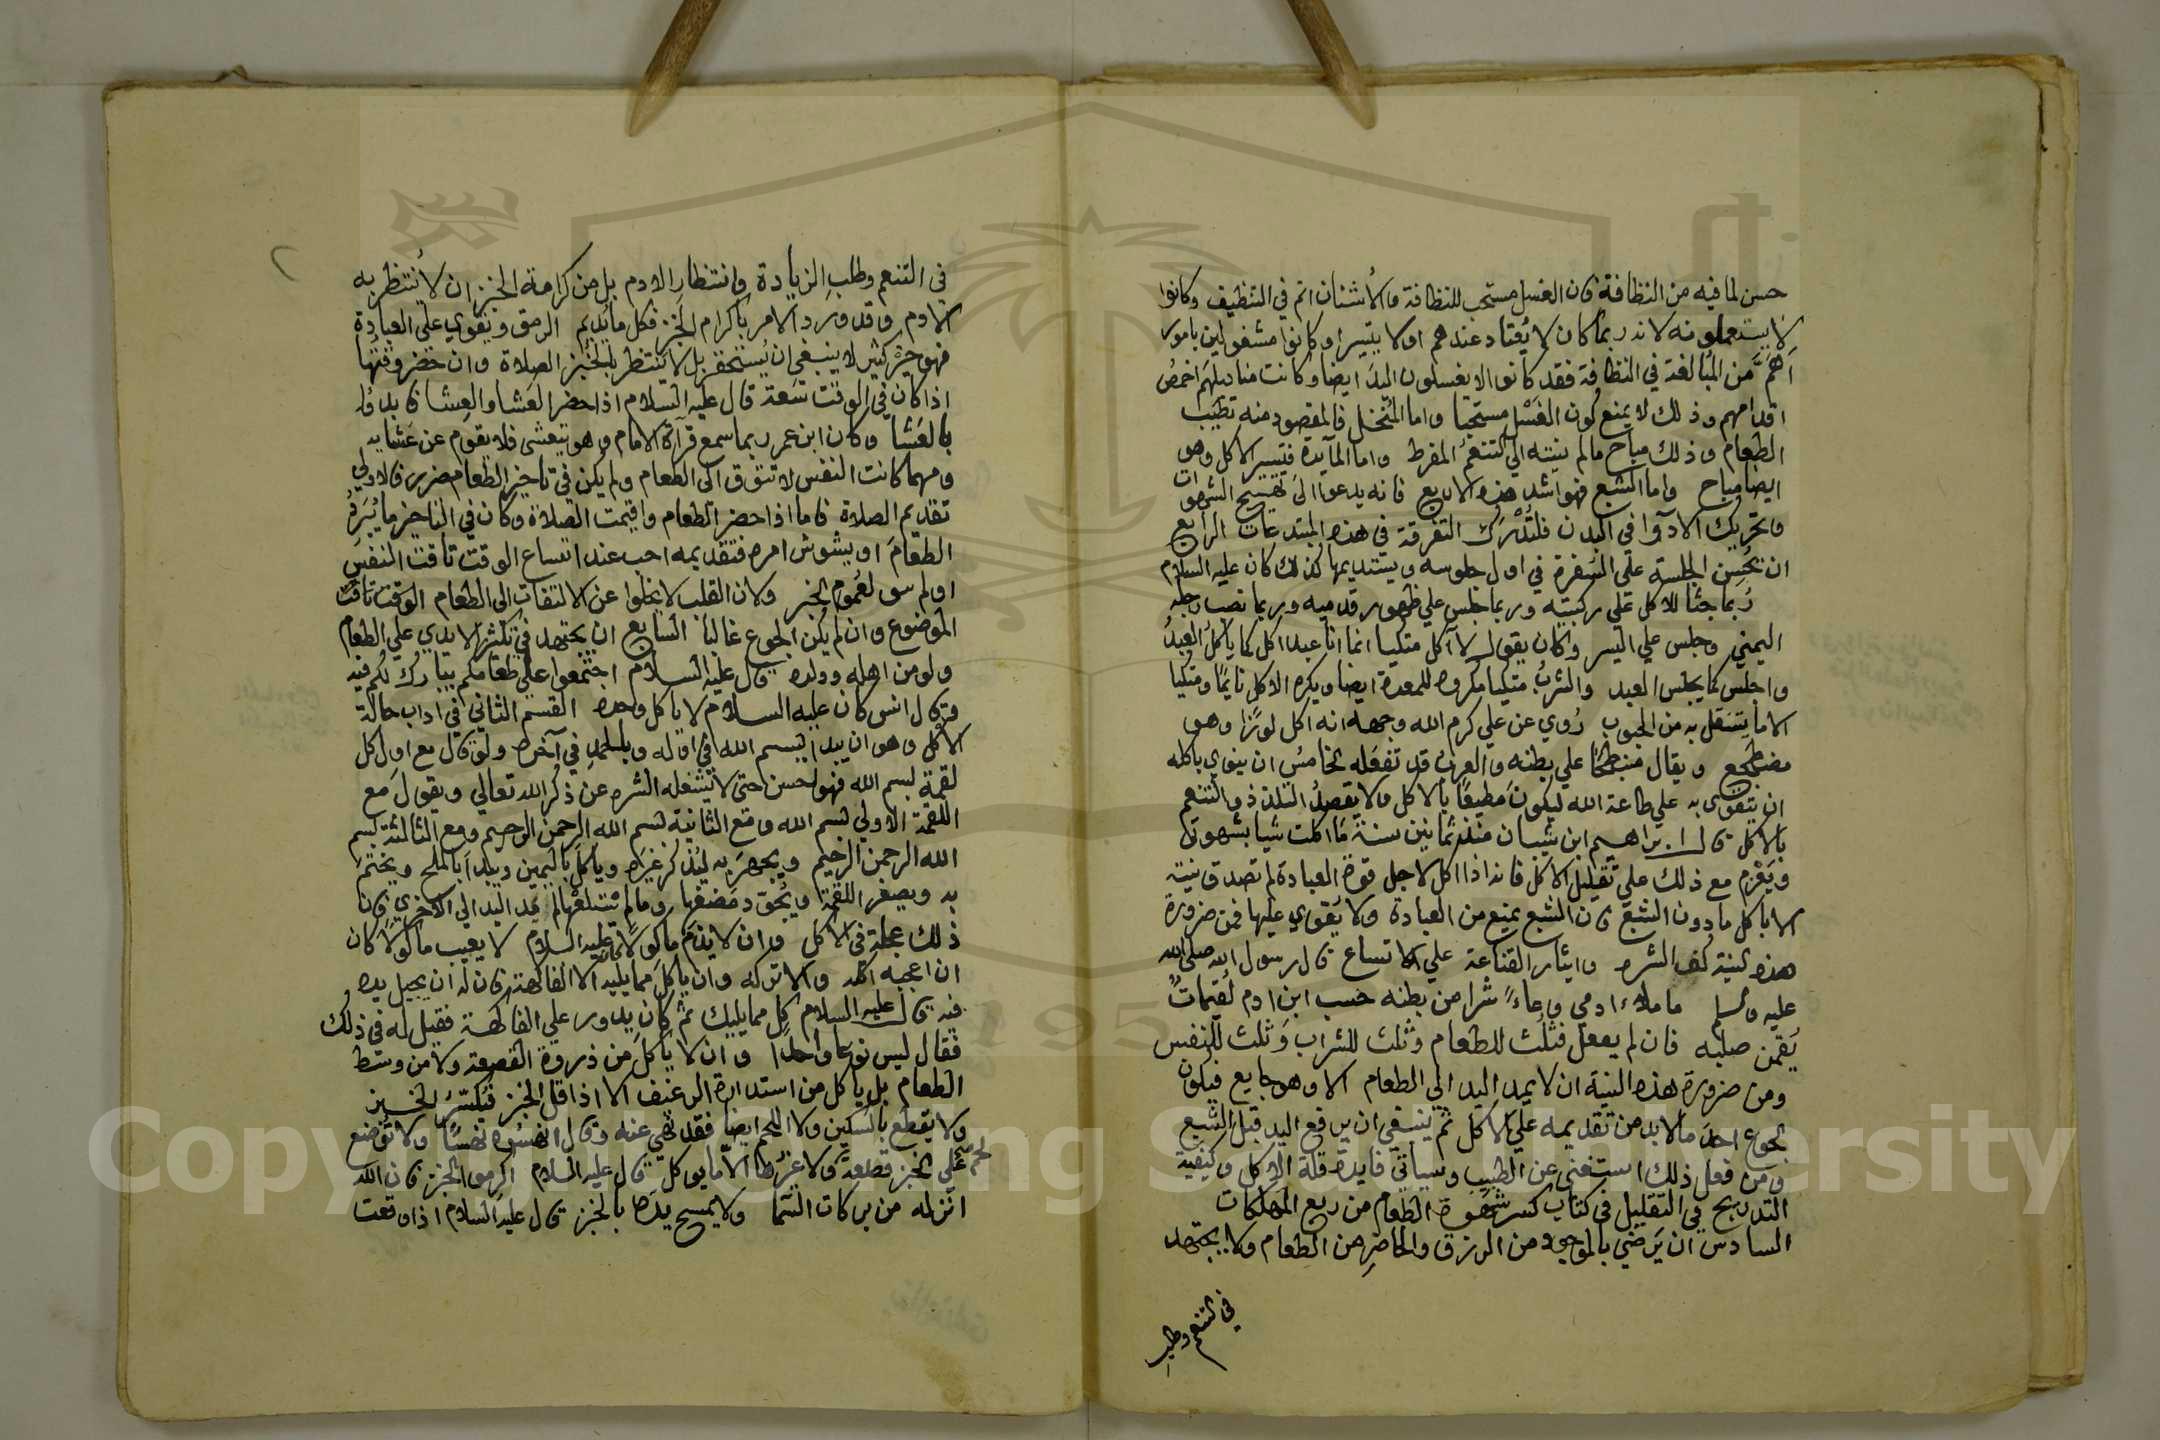 حسن لما فيه من النظافة فان الغسل مستحب للنظافة والاشنان اتم في التنظيف وكانوا
لا يستعملونه لانه ربما كان لا يُعتاد عندهم او لا يتيسر او كانوا مشغولين بامور
اهَمَّ من المبالغة في النظافة فقد كانوا لا يغسلون اليدَ ايضا وكانت مناديلهم اخمصُ
اقدامهم وذلك لا يمنع كون الغَسْل مستحبا واما المُنخل فالمقصود منه تطيَيب
الطعام وذلك مباح مالم ينته الي التنعُمّ المفرط واما المآيدة فتيسير الاكل وهو
ايضا مباح واما الشبع فهو اشد هذه الاربع فانه يدعوا الَي تهييج الشهوات
وتحريك الادوآ في البدن فلتُدْرَك التفرقة في هذه المبتدعات الرابع
ان يُحسِن الجلسة علي السُفرة في اول جلوسه ويستديمها كذلك كان عليه السلام
رُبما جثا للاكل علي ركبتيه وربما جلس علي ظهور قدميه وربما نصب رجله
اليمني وجلس علي اليسر وكان يقول لا آكل متكيا انما انا عبد اكل كما ياكل العبدُ
واجلس كما يجلس العبد والشربُ متكيا مكروه للمعدة ايضا ويكره الاكل نايمًا ومتكيا
الا ما يتنقل به من الحبوب رُوي عن علي كرم الله وجهه انه اكل لوزًا وهو
مضطجع ويقال منبطحًا علي بطنه والعربُ قد تفعَله الخامس ان ينوي باكله
ان يتقوي به علي طاعة الله ليكون مطيعًا بالاكل ولا يقصدُ التلذذ والتنعم
بالاكل قال ابراهيم ابن شيبان منذ ثمانين سنة مَا اكلت شيا بشهوتي
ويَعْزم مع ذلك علي تقليل الاكل فانه اذا اكل لاجل قوة العبادة لم تصدق نيته
الا باكل ما دون الشبع فان الشبع يمنع من العبادة ولا يقوي عليها فمن ضرورة
هذه النية كف الشره وايثار القناعة علي الاتساع قال رسول الله صلي الله
عليه وسلم ما ملاء ادمي وعاءً شرا من بطنه حسب ابن ادم لُقيماتٌ
يُقمن صلبه فان لم يفعل فثُلث للطعام وثلث للشراب وَثلث للنفس
ومن ضرورة هذه النية ان لا يمد اليد الي الطعام الا وهو جايع فيكون
الجوع احدَ ما لا بد من تقديمه علي الاكل ثم ينبغي ان يرفع اليد قبل الشبع
ومن فعل ذلك استغني عن الطبيب وسياتي فايدة قلة الاكل وكيفية
التدريج في التقليل في كتاب كسر شهوة الطعام من ربع المهلكات
السادس ان يَرضي بالموجود من الرزق والحاضرِ من الطعام ولا يجتهد
في التنعم وطلبِ
في التنعم وطلب الزيادة وانتظار الادم بل من كرامة الخبز ان لا يُنتظر به
الادم وقد ورد الامر باكرام الخبز فكل ما يُديم الرمق ويقوي علي العبادة
فهو خيرٌ كثير لا ينبغي ان يُستحقر بل لا يُنتظر بالخبز الصلاة وان حضر وقتُها
اذا كان في الوقت سَعة قال عليه السلام اذا حضر العَشا والعِشا فابدوُا
بالعَشا وكان ابن عمر ربما سمع قرآة الامام وهو يتعشى فلا يقوم عن عَشايه
ومهما كانت النفس لا تتوق الى الطعام ولم يكن في تاخير الطعام ضرر فالاولي
تقديم الصلاة فاما اذا حضر الطعام واقيمت الصلاة وكان في التاخير ما يُبَرِّدُ
الطعامَ او يشوش امره فتقديمه احب عند اتساع الوقت تاقت النفس
او لم تتق لعُموم الخبر ولان القلب لا يخلوا عن الالتفات الى الطعام
الموضوع وان لم يكن الجوع غالبًا السابع ان يجتهد في تكثير الايدي علي الطعام
ولو من اهله وولده قال عليه السلام اجتمعوا علي طعامكم يبارك لكم فيه
وقال انس كان عليه السلام لا ياكل وحده القسم الثاني في اداب حالة
الاكل وهو ان يبدا ببسم الله في اوله وبالحمدِ في آخره ولو قال مع اول كل
لقمة بسم الله فهو احسن حتى لا يشغله الشره عن ذكر الله تعالي ويقول مع
اللقمة الاولي بسم الله ومَع الثانية بسم الله الرحمن الرحيم ومع الثالثة بسم
الله الرحمن الرحيم ويجهر به ليُذكر غيره وياكل باليمين ويبدا بالملح ويختم
به ويصغر اللقمة ويجوّد مَضغها ومالم يبتلعْها لم يمد اليد الي الاخري فان
ذلك عجلة في الاكل وان لا يذم ماكولا كان عليه السلام لا يعيب ماكولًا كان
ان اعجبه اكله والا تركه وان ياكل مما يليه الا الفاكهة فان له ان يجيل يده
فيه قال عليه السلام كل مما يليك ثم كان يدور علي الفاكهة فقيل له في ذلك
فقال ليس نوعا واحدا وان لا ياكل من ذروة القصعة ولا من وسط
الطعام بل ياكل من استدارة الرغيف الا اذا قل الخبز فيُكسّرُ الخبز
ولا يقطع بالسكين ولا اللحم ايضا فقد نهي عنه وقال انهسُوه نهسًا ولا توضع
علي الخبز قصعة ولا غيُرها الا ما يوكل قال عليه السلام اكرموا الخبز فان الله
انزله من بركات السَما ولا يمسح يَده بالخبز قال عليه السلام اذا وقعت